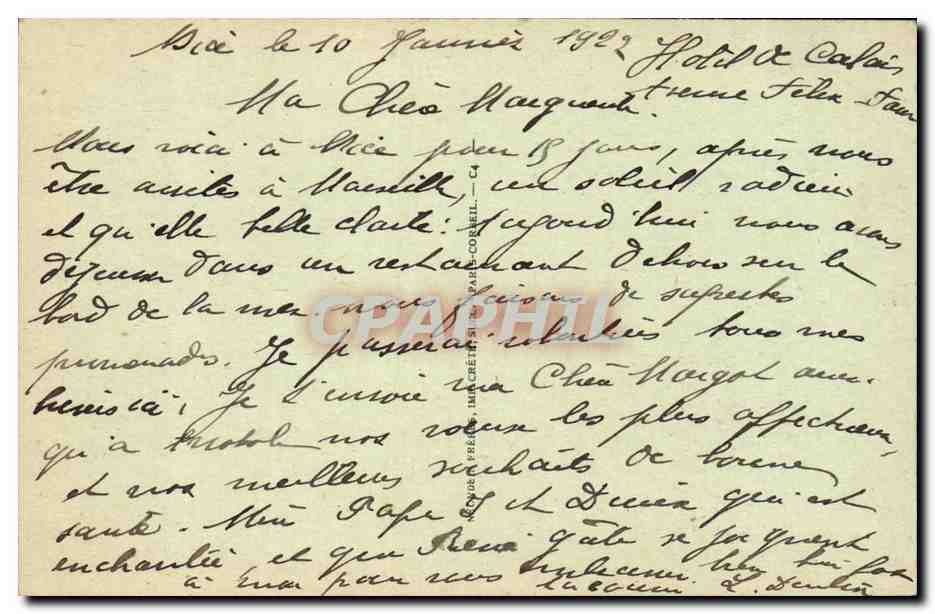 Nice le 10 Janvier 1922
Hotel de Calais
Félix Faure
Ma Chère Marguerite
Nous voici à Nice pour 15 jours, après nous
être arrêtés à Marseille, un soleil radieux
et qu'elle belle clarté! Aujourd'hui nous avons
déjeuner dans un restaurant dehors sur le
bord de la mer. nous faisons de superbes
promenades. Je passerai volontiers tous mes
hivers ici, Je t'envoie ma Chère Margot ainsi
qu'à nos vœux les plus affectueux,
et nos meilleurs souhaits de bonne
santé. Mère Papa et Denise qui est
enchantée et que René gâte se joignent
à moi pour vous embrasser bien fort
L.
CPAPHIL
FRÈRES, IMP. CRÉTÉ, SUCC. PARIS-CORBEIL. — C4